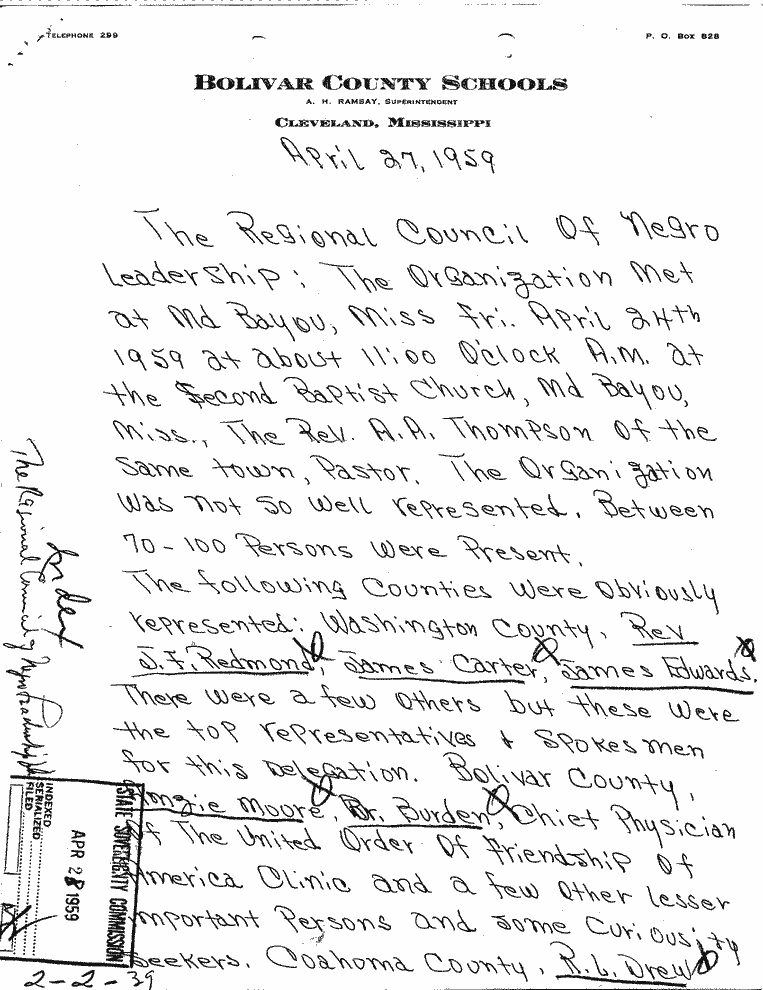 TELEPHONE 299
P. O. BOX 828
BOLIVAR COUNTY SCHOOLS
A. H. RAMSAY, SUPERINTENDENT
CLEVELAND, MISSISSIPPI
April 27, 1959
The Regional Council Of Negro
Leadership: The Organization Met
at Md Bayou, Miss Fri. April 24th
1959 at about 11:00 O'clock A.M. at
the Second Baptist Church, Md Bayou,
Miss., The Rev. A.A. Thompson of the
Same town, Pastor. The Organization
was not so well represented. Between
70-100 Persons were Present.
The following Counties were obviously
represented: Washington County, Rev
J.F. Redmond, James Carter, James Edwards.
There were a few others but these were
the top representatives & Spokesmen
for this Delegation. Bolivar County,
Amzie Moore, Dr. Burden, Chief Physician
of The United Order Of Friendship of
America Clinic and a few other lesser
important Persons and some Curiousity
Seekers. Coahoma County, R.L. Drew
Index
The Regional Council of Negro Leadership
STATE SOVEREIGNTY COMMISSION
APR 28 1959
INDEXED
SERIALIZED
FILED
2-2-39